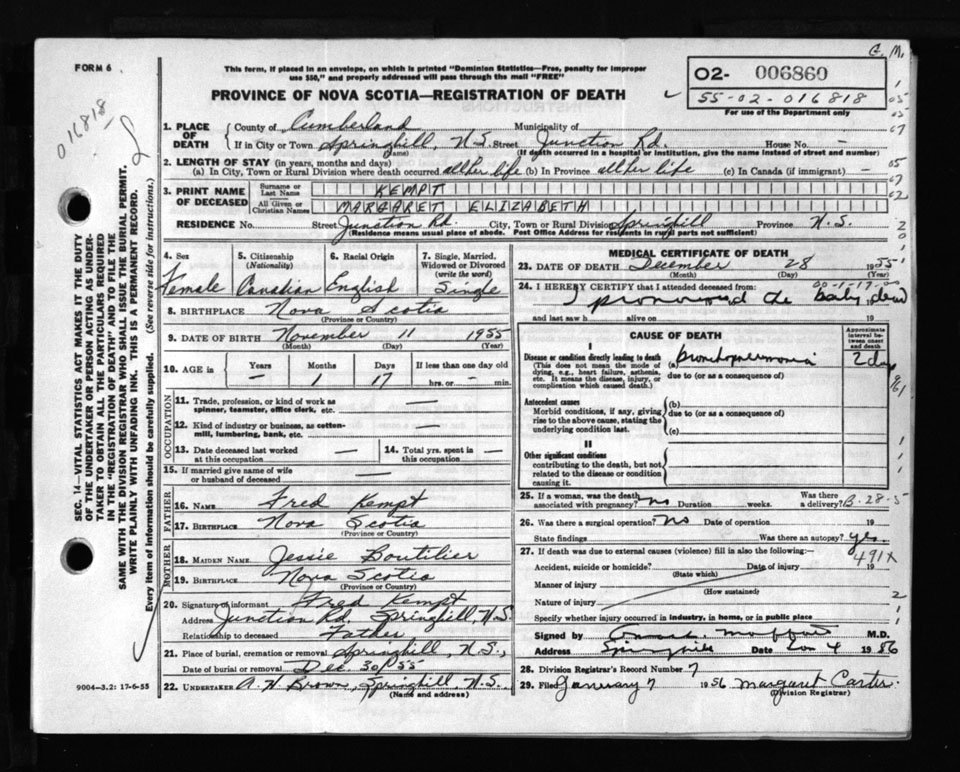 G. M.
FORM 6
This form, if placed in an envelope, on which is printed "Dominion Statistics—Free, penalty for improper
use $50," and properly addressed will pass through the mail "FREE"
02- 006860
55-02-016818
For use of the Department only
PROVINCE OF NOVA SCOTIA—REGISTRATION OF DEATH
016818
SEC. 14—VITAL STATISTICS ACT MAKES IT THE DUTY
OF THE UNDERTAKER OR PERSON ACTING AS UNDER-
TAKER TO OBTAIN ALL THE PARTICULARS REQUIRED
IN THE "REGISTRATION OF DEATH" AND TO FILE THE
SAME WITH THE DIVISION REGISTRAR WHO SHALL ISSUE THE BURIAL PERMIT.
WRITE PLAINLY WITH UNFADING INK. THIS IS A PERMANENT RECORD.
Every item of information should be carefully supplied. (See reverse side for instructions.)
1. PLACE OF DEATH County of Cumberland Municipality of
If in City or Town Springhill, N.S. Street Junction Rd. House No. —
(Name) (If death occurred in a hospital or institution, give the name instead of street and number)
2. LENGTH OF STAY (in years, months and days)
(a) In City, Town or Rural Division where death occurred all her life (b) In Province all her life (c) In Canada (if immigrant) —
3. PRINT NAME OF DECEASED Surname or Last Name KEMPT
All Given or Christian Names MARGARET ELIZABETH
RESIDENCE No. Street Junction Rd. City, Town or Rural Division Springhill Province N.S.
(Residence means usual place of abode. Post Office Address for residents in rural parts not sufficient)
4. Sex 5. Citizenship (Nationality) 6. Racial Origin 7. Single, Married, Widowed or Divorced (write the word)
Female Canadian English Single
8. BIRTHPLACE Nova Scotia
(Province or Country)
9. DATE OF BIRTH November 11 1955
(Month) (Day) (Year)
10. AGE in Years Months Days If less than one day old
— 1 17 hrs. or — min.
OCCUPATION
11. Trade, profession, or kind of work as
spinner, teamster, office clerk, etc. —
12. Kind of industry or business, as cotten-
mill, lumbering, bank, etc. —
13. Date deceased last worked at this occupation — 14. Total yrs. spent in this occupation —
15. If married give name of wife
or husband of deceased
FATHER
16. NAME Fred Kempt
17. BIRTHPLACE Nova Scotia
(Province or Country)
MOTHER
18. MAIDEN NAME Jessie Boutilier
19. BIRTHPLACE Nova Scotia
(Province or Country)
20. Signature of informant Fred Kempt
Address Junction Rd. Springhill, N.S.
Relationship to deceased Father
21. Place of burial, cremation or removal Springhill, N.S.,
Date of burial or removal Dec. 30/55
22. UNDERTAKER A H Brown, Springhill, N.S.
(Name and address)
9004—3.2: 17-6-55
MEDICAL CERTIFICATE OF DEATH
23. DATE OF DEATH December 28 1955
(Month) (Day)
24. I HEREBY CERTIFY that I attended deceased from:
I pronounced the baby dead
and last saw h alive on 19
CAUSE OF DEATH
Approximate interval between onset and death
I
Disease or condition directly leading to death (a) Bronchopneumonia 2 days
(This does not mean the mode of
dying, e.g., heart failure, asthenia,
etc. It means the disease, injury, or
complication which caused death.)
due to (or as a consequence of)
Antecedent causes (b)
Morbid conditions, if any, giving
rise to the above cause, stating the
underlying condition last.
due to (or as a consequence of)
(c)
II
Other significant conditions
contributing to the death, but not
related to the disease or condition
causing it.
25. If a woman, was the death
associated with pregnancy? no Duration weeks. Was there a delivery? B-28-5
26. Was there a surgical operation? No Date of operation 19
State findings Was there an autopsy? yes.
27. If death was due to external causes (violence) fill in also the following:— 491X
Accident, suicide or homicide? Date of injury 19
(State which)
Manner of injury
(How sustained)
Nature of injury
Specify whether injury occurred in industry, in home, or in public place
Signed by M.D.
Address Springhill Date Jan 4 1956
28. Division Registrar's Record Number 7
29. Filed January 7 1956 Margaret Carter
(Division Registrar)